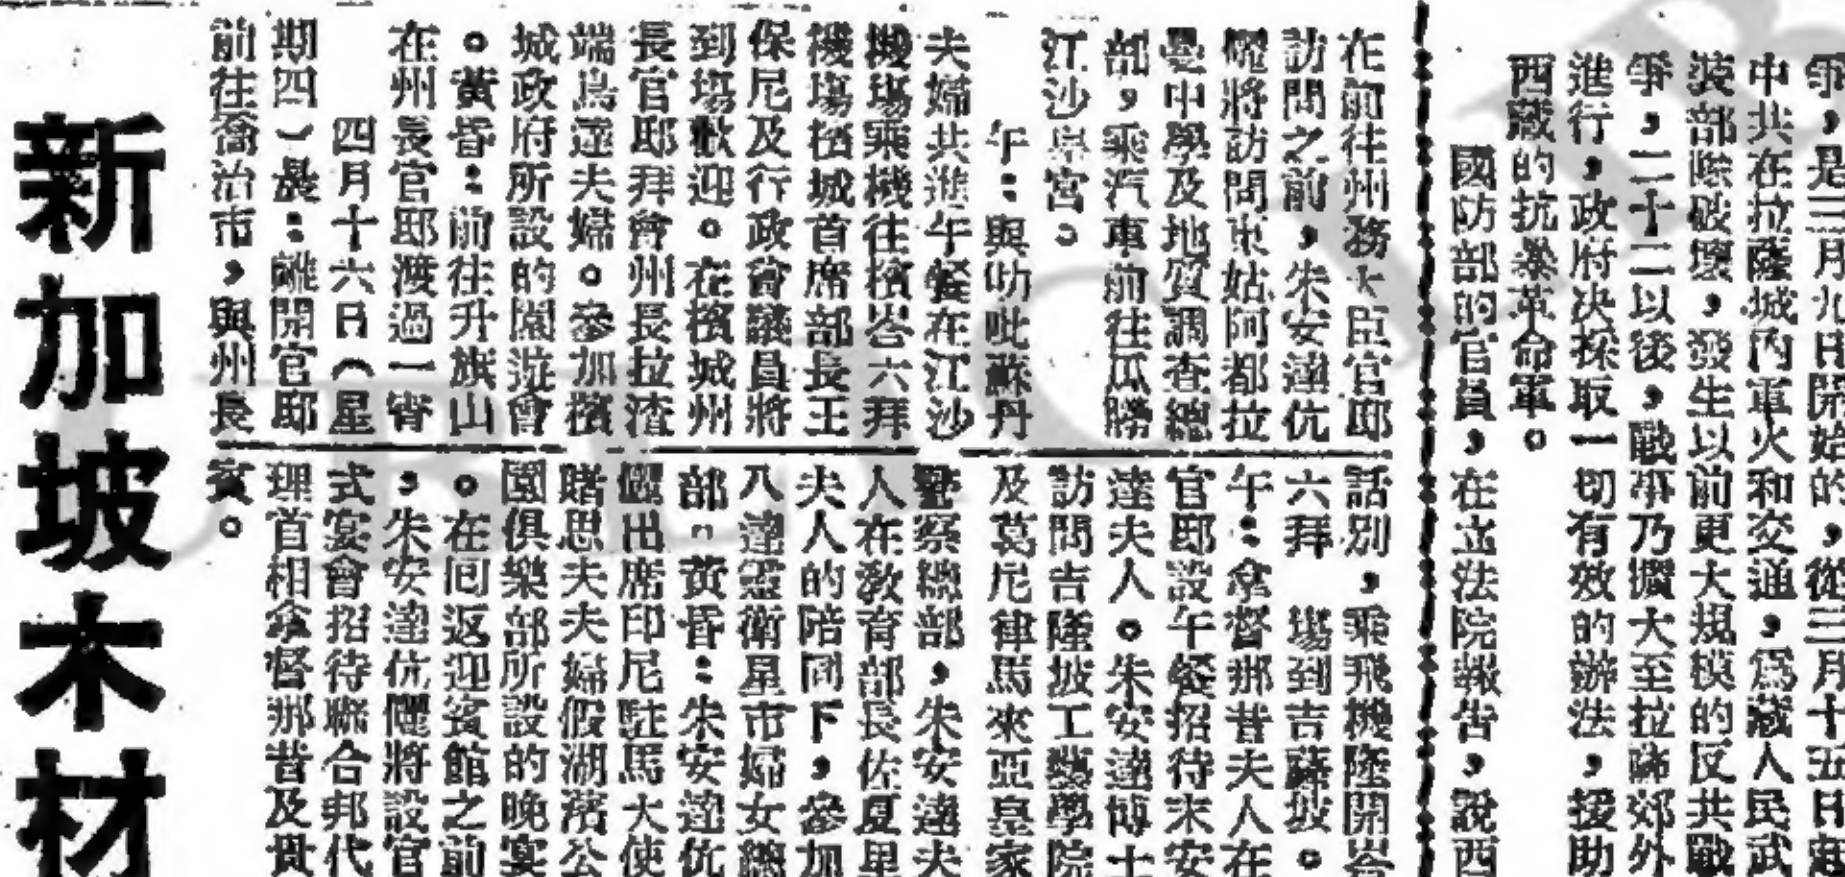 爭，是三月九日開始的，從三月十五日起
中共在拉薩城內軍火和交通，為藏人民武
裝部隊破壞，發生以前更大規模的反共戰
爭，二十二以後，戰事乃擴大至拉薩郊外
進行，政府决採取一切有效的辦法，援助
西藏的抗暴革命軍。
國防部的官員，在立法院報告，說西
在前往州務大臣官邸
訪問之前，朱安達伉
儷將訪問東姑阿都拉
曼中學及地質調查總
部，乘汽車前往瓜朥
江沙皇宮。
午：與叻吡蘇丹
夫婦共進午餐在江沙
機塲乘機往檳峇六拜
機塲檳城首席部長王
保尼及行政會議員將
到塲歡迎。在檳城州
長官邸拜會州長拉渣
端烏達夫婦。參加檳
城政府所設的園遊會
。黃昏：前往升旗山
在州長官邸渡過一宵
四月十六日（星
期四）晨：離開官邸
前往喬治市，與州長
話別，乘飛機離開峇
六拜 塲到吉隆坡。
午：拿督那昔夫人在
官邸設午餐招待末安
達夫人。朱安達博士
訪問吉隆坡工藝學院
及莫尼律馬來亞皇家
警察總部，朱安達夫
人在教育部長佐夏里
夫人的陪同下，參加
八達靈衛星市婦女總
部。黃昏：朱安達伉
儷出席印尼駐馬大使
賭思夫夫婦假湖濱公
園俱樂部所設的晚宴
。在囘返迎賓館之前
，朱安達伉儷將設官
式宴會招待聯合邦代
理首相拿督那昔及貴
賓。
新加坡木材